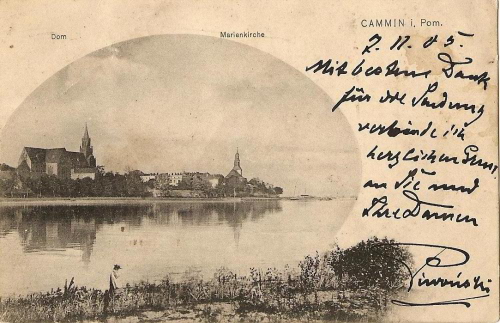 Dom
Marienkirche
CAMMIN i. Pom.
7. 11. 05.
Mit bestem Dank
für die Sendung
verbinde ich
herzlichen Gruss
an Sie und
Ihre Damen
Piwoński